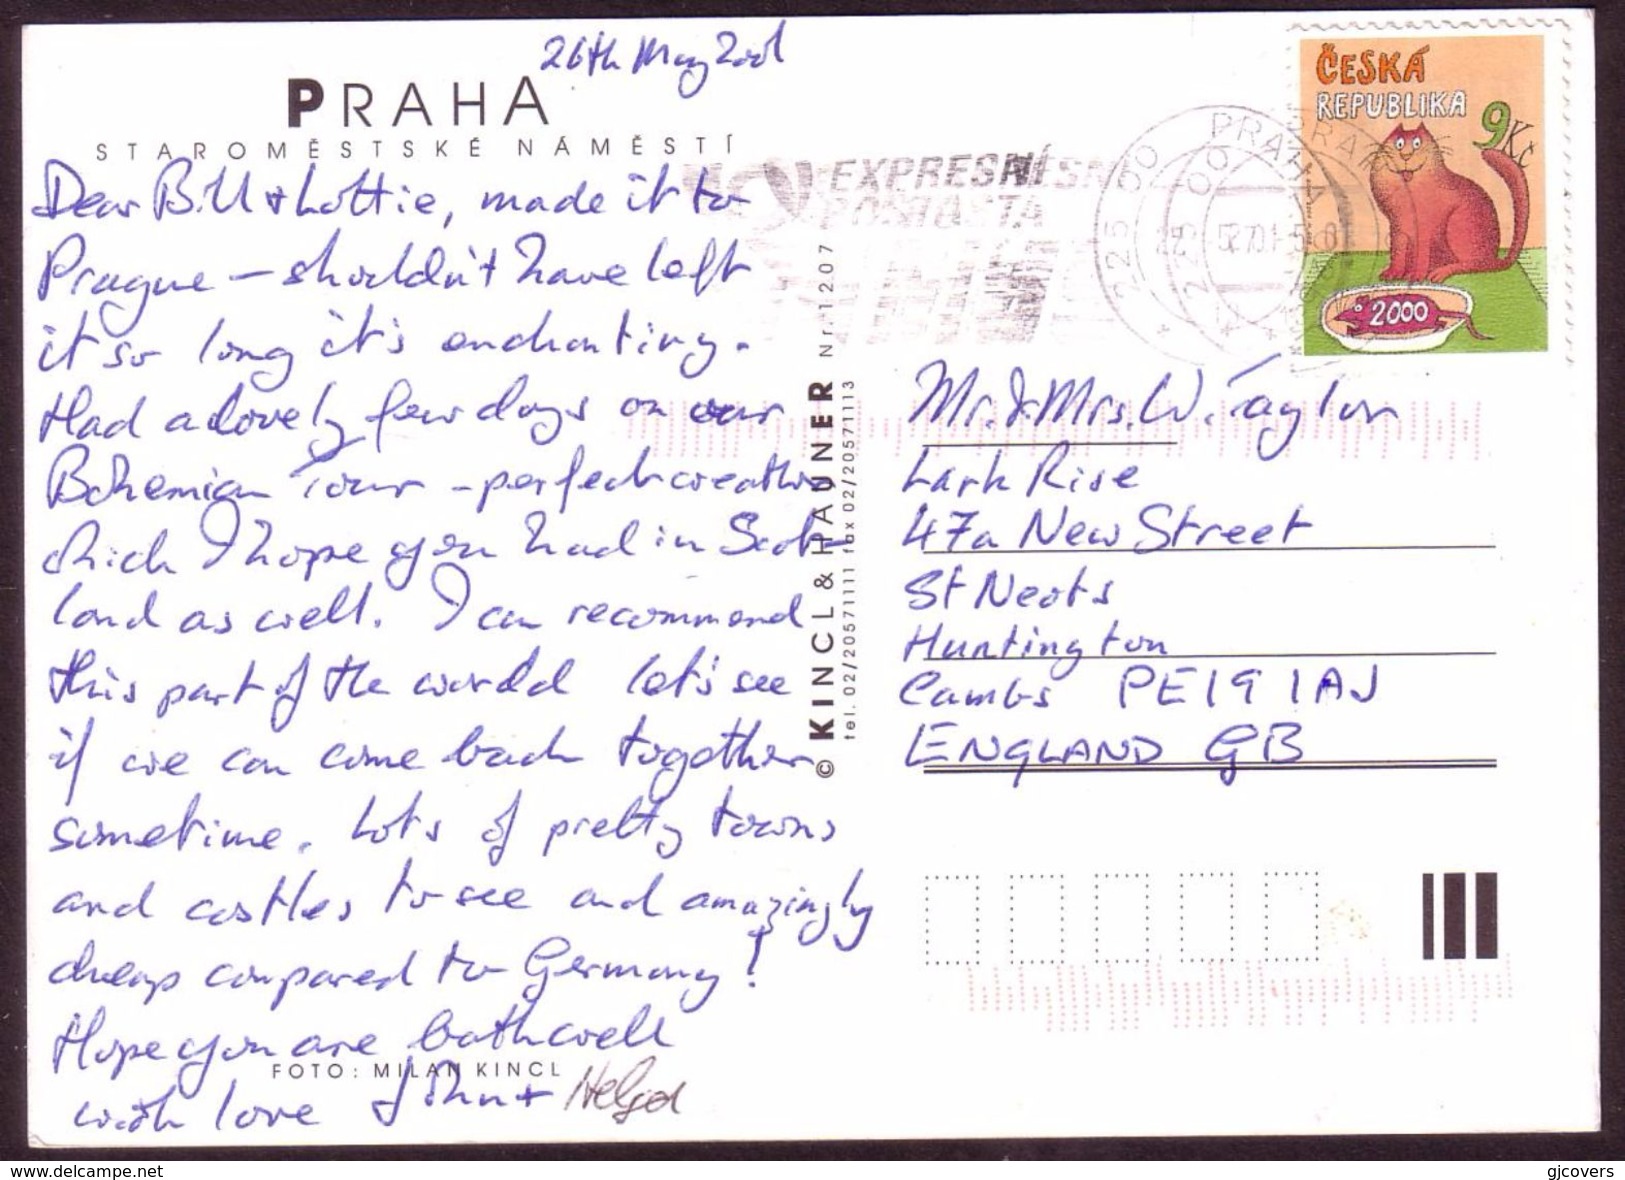 26th May 2001
PRAHA
STAROMĚSTSKÉ NÁMĚSTÍ
Dear Bill & Lottie, made it to
Prague – shouldn't have left
it so long it's enchanting.
Had a lovely few days on our
Bohemian Tour – perfect weather
which I hope you had in Scot-
land as well. I can recommend
this part of the world let's see
if we can come back together
sometime. Lots of pretty towns
and castles to see and amazingly
cheap compared to Germany!
Hope you are both well
FOTO: MILAN KINCL
with love John + Helga
© KINCL & PAUNER Nr. 1207
tel. 02/20571111 fax 02/20571113
EXPRESNÍ
225 00
PRAHA
ČESKÁ
REPUBLIKA
9Kč
2000
Mr. & Mrs. W. Taylor
Lark Rise
47a New Street
St Neots
Huntington
Cambs PE19 1AJ
ENGLAND GB
www.delcampe.net
gjcovers